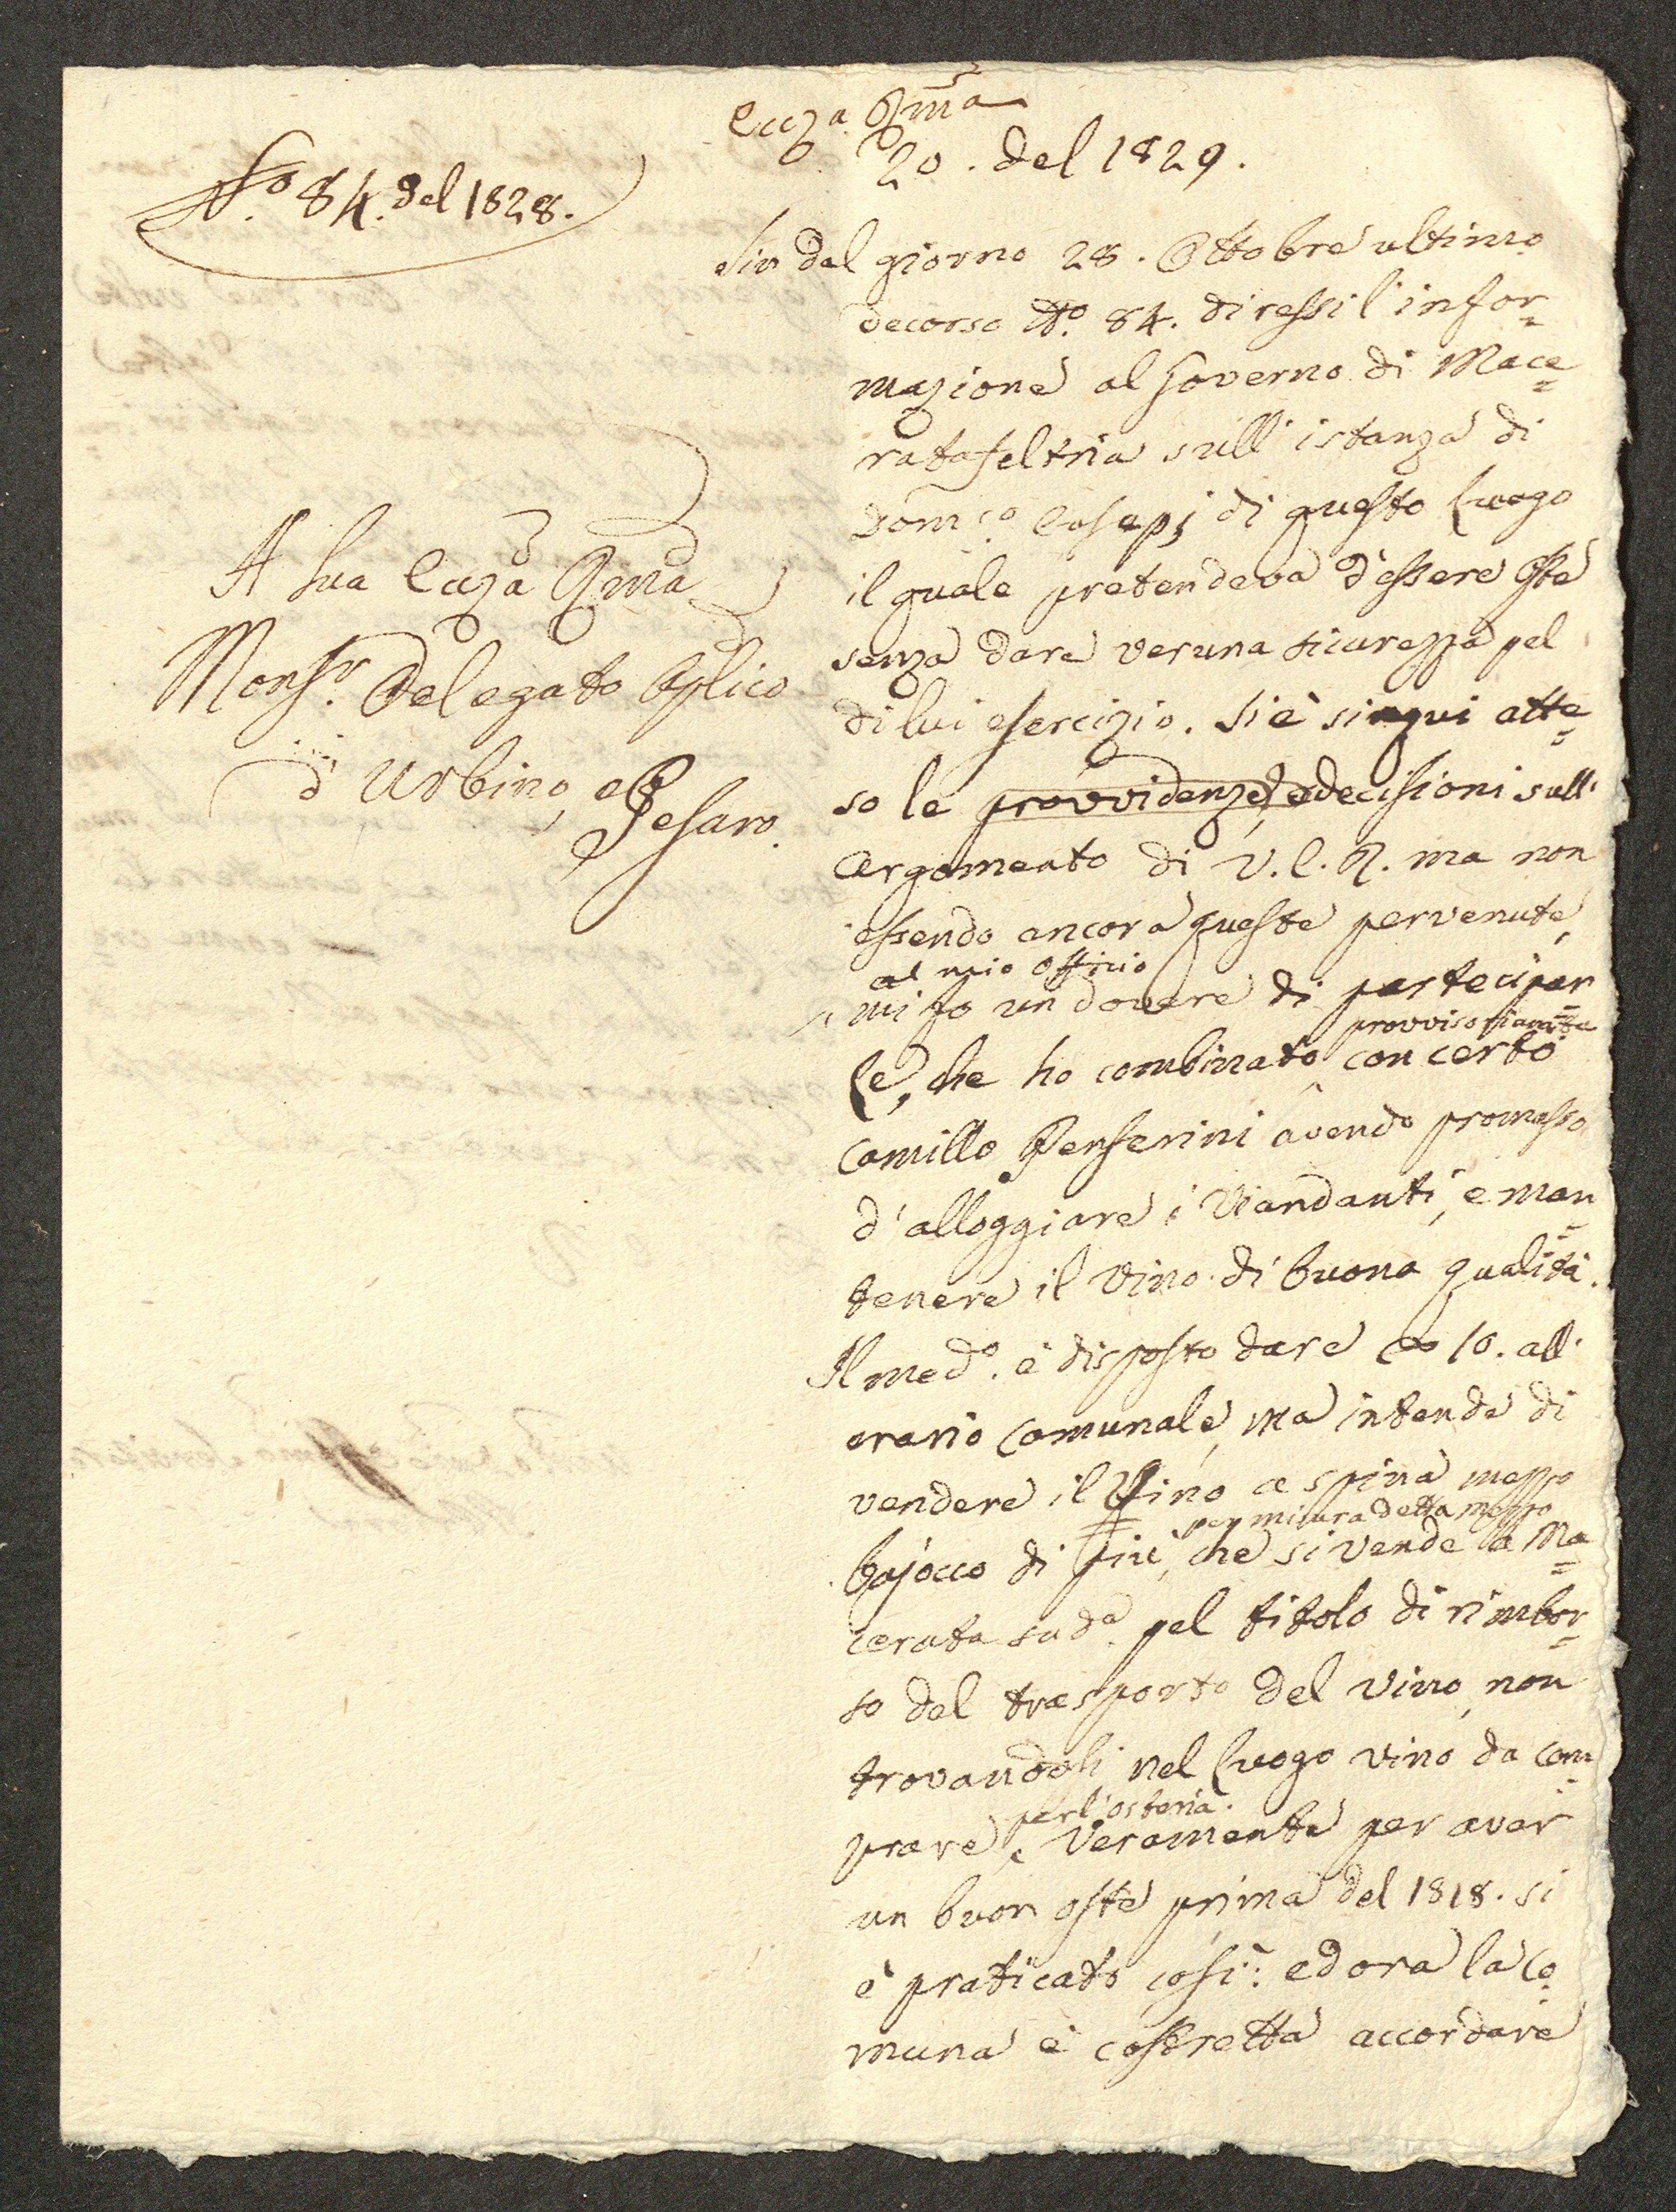 Eccza Rma
20. del 1829.
No. 84. del 1828.
A Sua Eccza Rma
Monsr. Delegato Aplico
d'Urbino, e Pesaro.
Sin dal giorno 28. Ottobre ultimo
decorso No. 84. diressi l'infor=
mazione al Governo di Mace=
ratafeltria sull'istanza di
Domco. di questo Luogo
il quale pretendeva d'essere Oste
senza dare veruna sicurezza pel
di lui esercizio. Si è sin qui atte=
so le provvidenze, e decisioni sull'
argomento di V. E. R. ma non
essendo ancora queste pervenute,
al mio officio
mi fo un dovere di partecipar=
provvisoriamte
Le, che ho combinato con certo
Camillo Penserini avendo promesso
d'alloggiare i Viandanti, e man=
tenere il vino di buona qualità.
Il medo. è disposto dare 10. all'
erario Comunale, ma intende di
vendere il Vino a spina mezzo
per misura detta mezzo
bajocco di più, che si vende a Ma=
cerata suda. pel titolo di rimbor=
so del trasporto del vino, non
trovandoli nel Luogo vino da com=
per l'osteria.
prare, Veramente per aver
un buon oste prima del 1818. si
è praticato così: ed ora la Co=
muna è costretta accordare